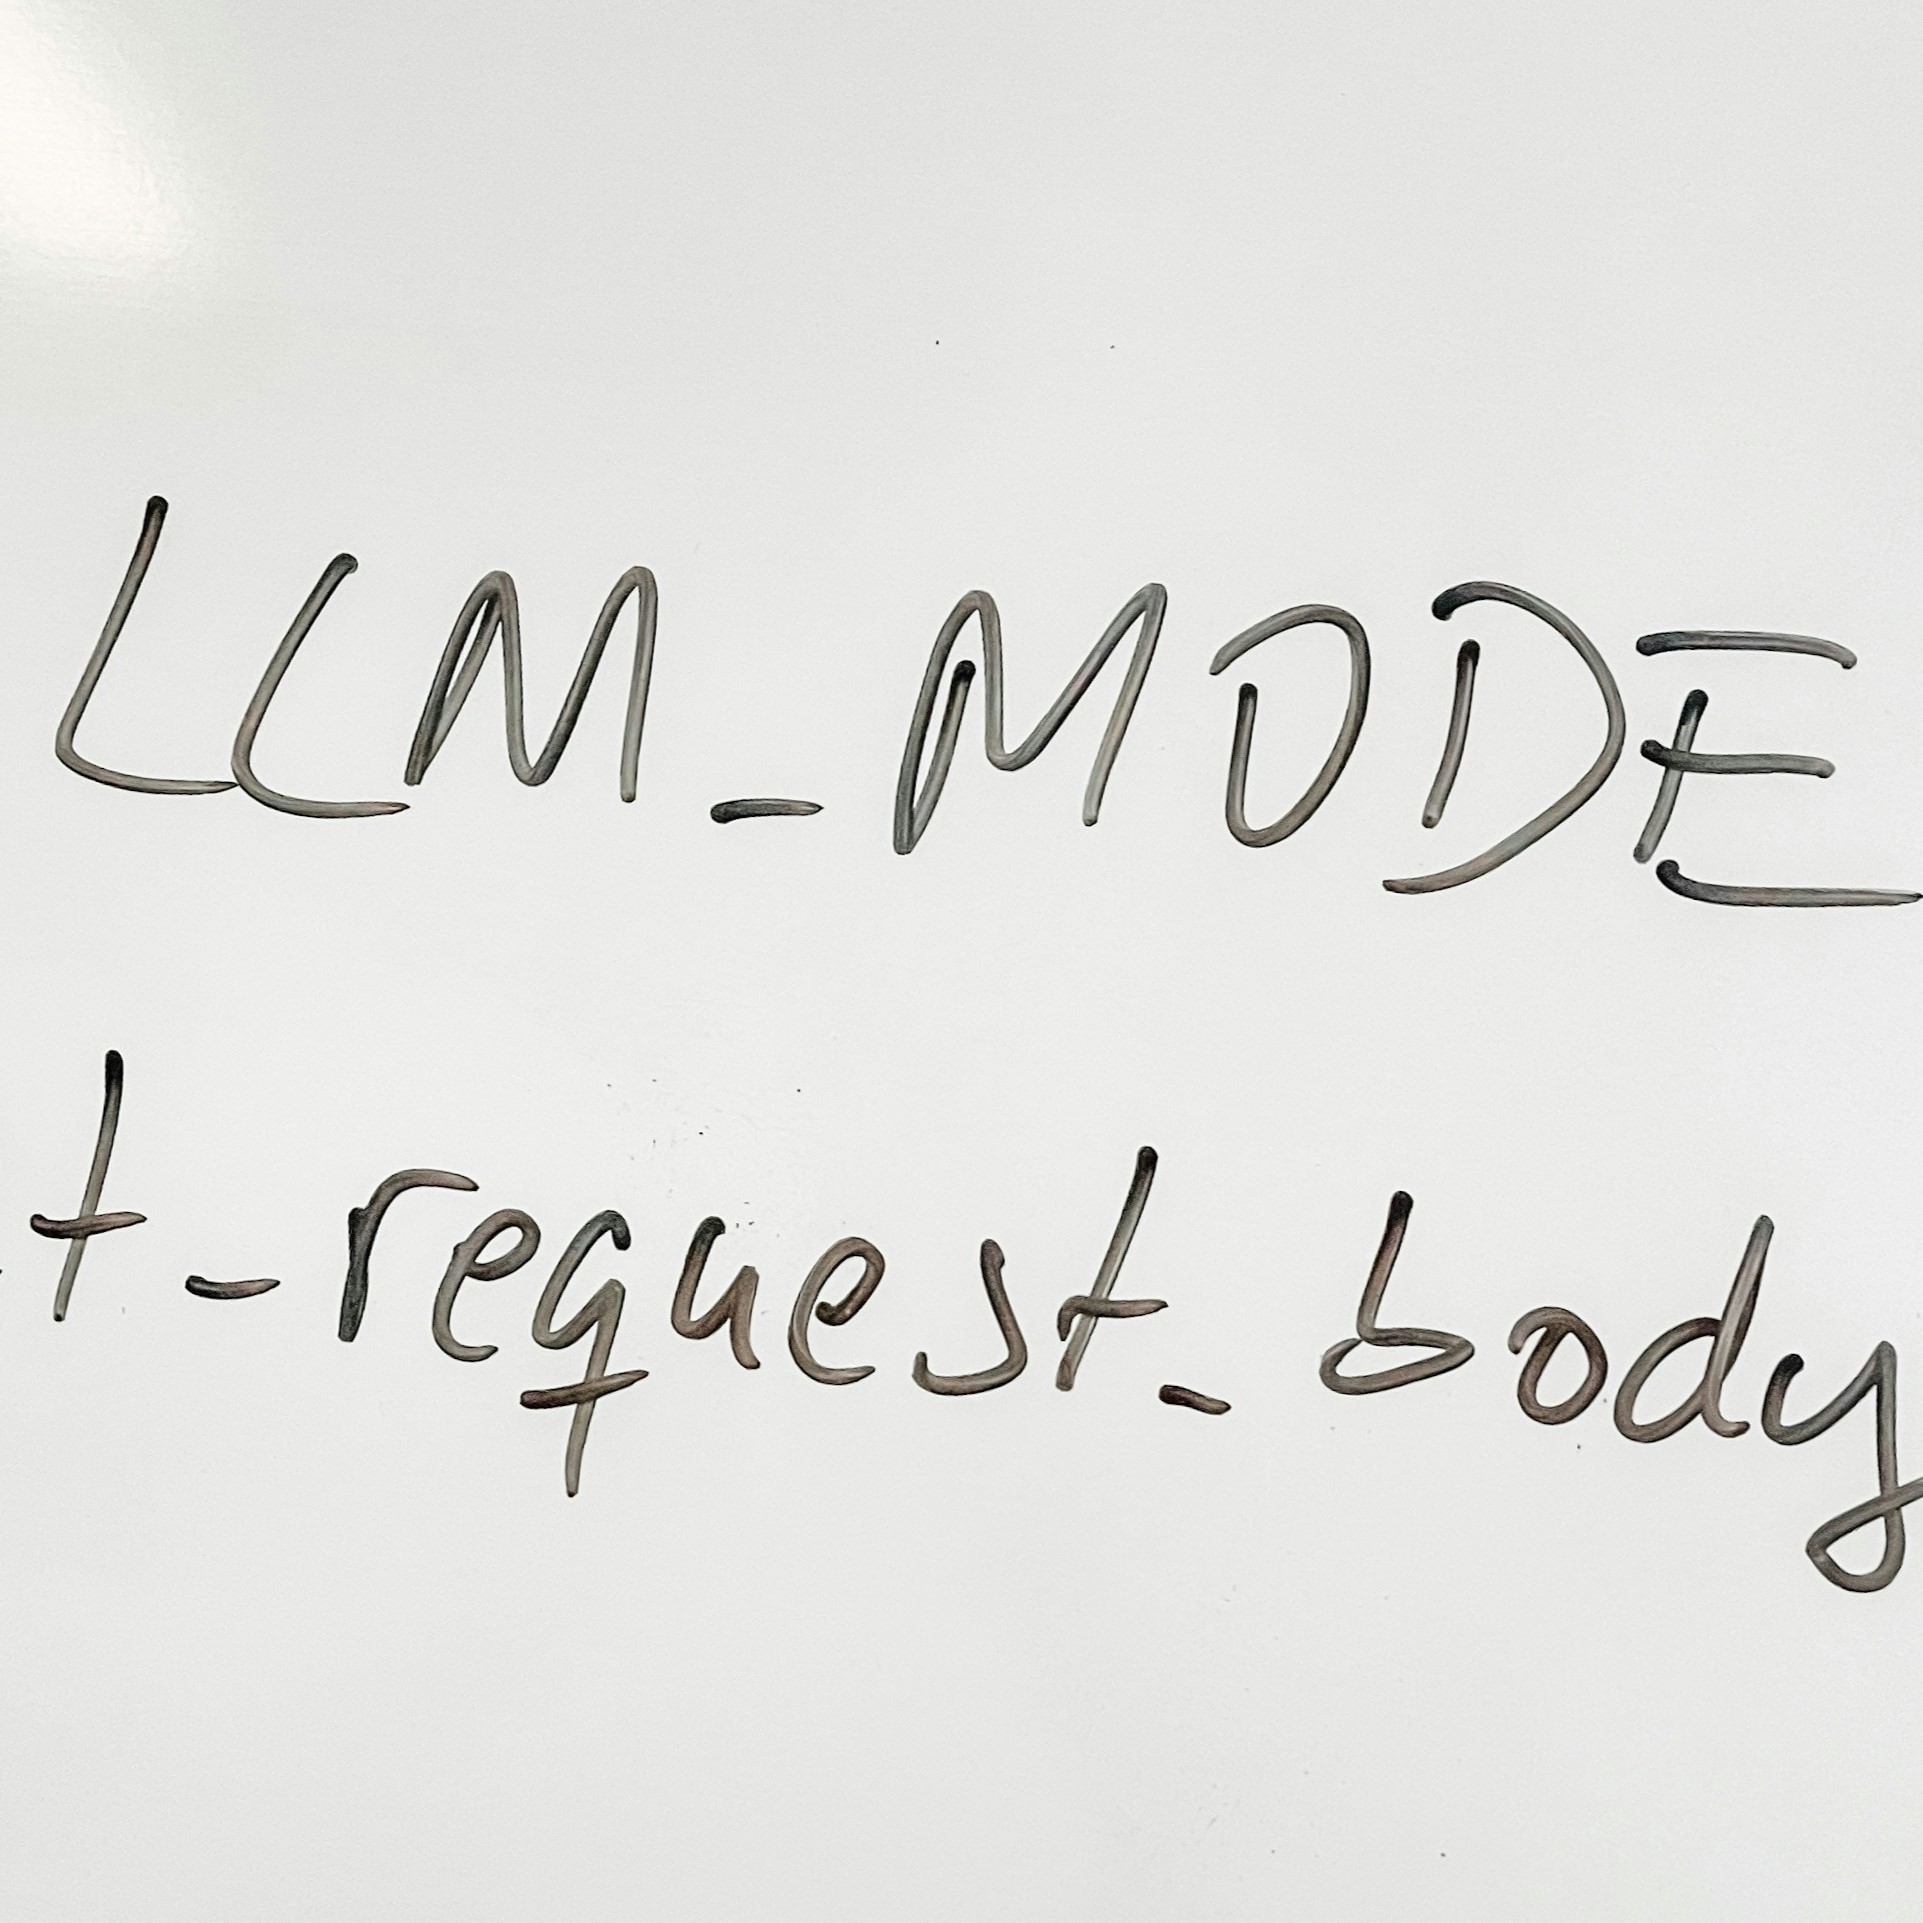 LLM_MODE
t_request_body